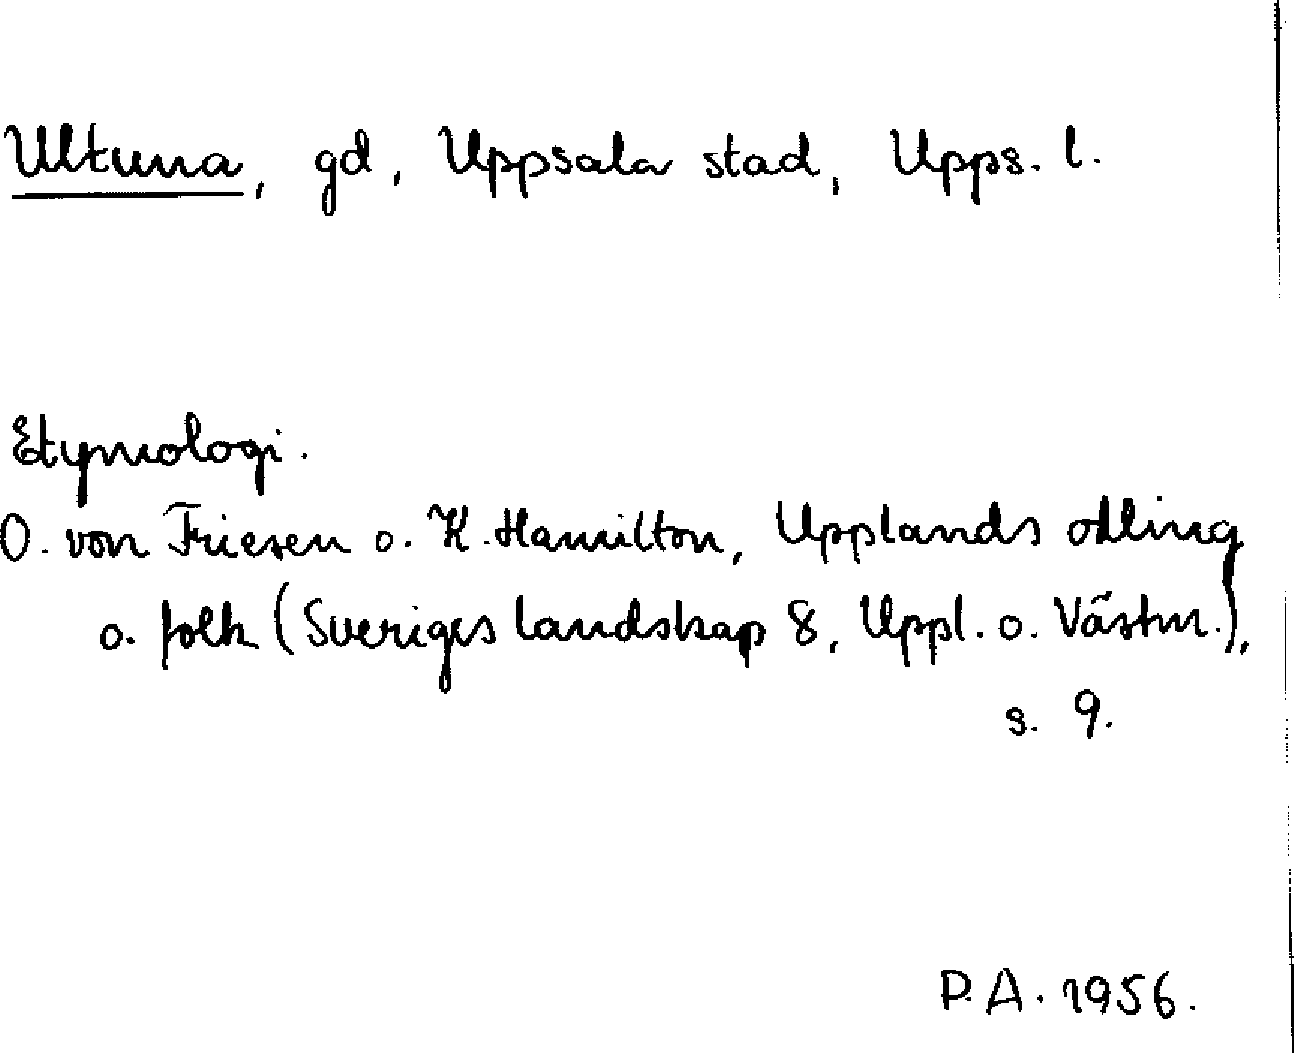 Ultuna, gd, Uppsala stad, Upps. l.
Etymologi.
O. von Friesen o. K. Hamilton, Upplands odling
o. folk (Sveriges landskap 8, Uppl. o. Västm.),
s. 9.
P.A. 1956.